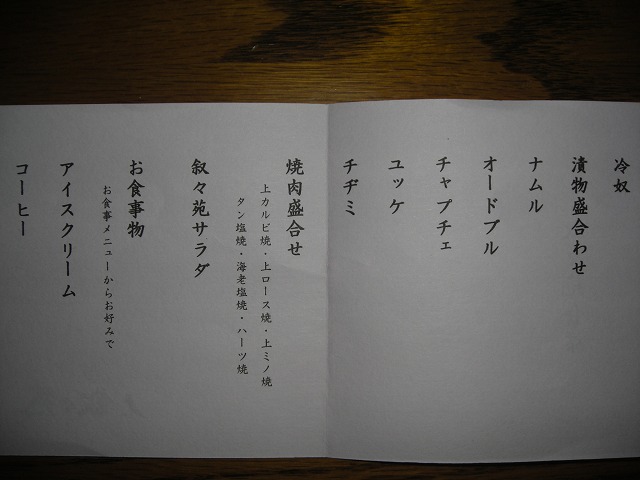 冷奴
漬物盛合わせ
ナムル
オードブル
チャプチェ
ユッケ
チヂミ
焼肉盛合せ
上カルビ焼・上ロース焼・上ミノ焼
タン塩焼・海老塩焼・ハーツ焼
叙々苑サラダ
お食事物
お食事メニューからお好みで
アイスクリーム
コーヒー